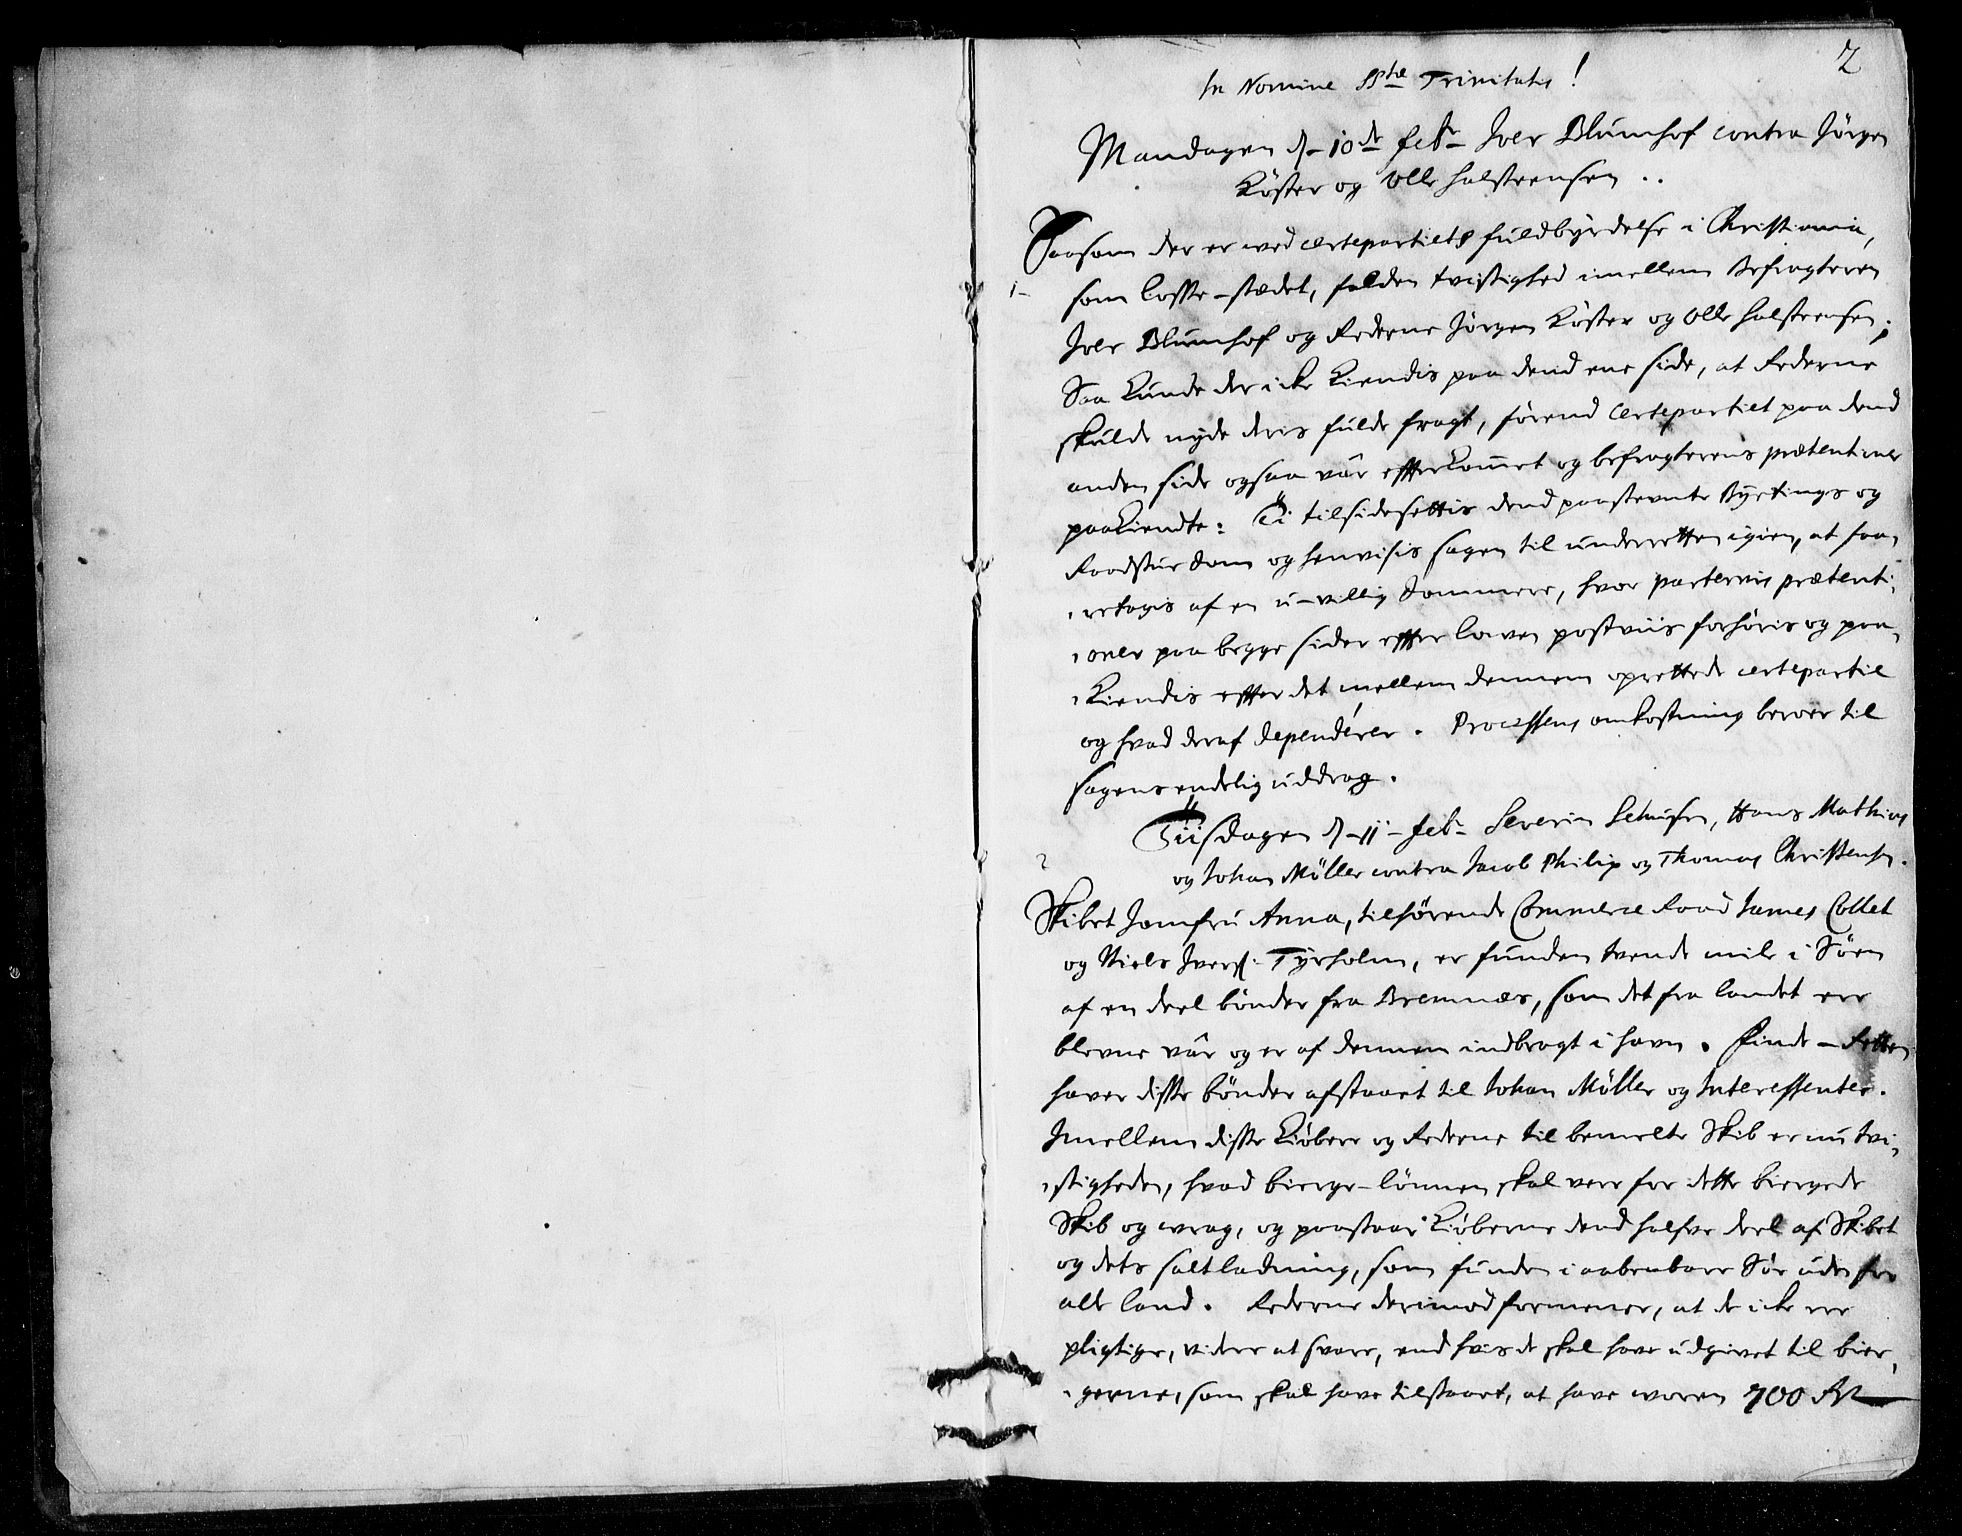 2
In Nomine SSthæ Trinitatis!
Mandagen d. 10de febr. Iver Blumhof contra Jörgen
Köster og Olle Halsteensen ..
Saasom der er ved certepartiets fuldbyrdelse i Christiania,
1-
som losse-stædet, falden tvistighed imellem Befragteren
Iver Blumhof og Rederne Jörgen Köster og Olle Halsteensen;
Saa kunde der icke kiendis paa dend ene side, at Rederne
skulde nyde deris fulde fragt, förend Certepartiet paa dend
anden side ogsaa vår effterkommet og befragterens prætentioner
paakiendte: Ti tilsidesettis dend paastevnte Byetings og
Raadstue dom og henvisis sagen til underretten igien, at faar
retagis af en u-villig dommere, hvor parternis prætenti,
oner paa begge sider effter loven postviis forhöris og paa,
kiendis effter det mellem dennem oprettede certepartie
og hvad deraf dependérer. Processens omkostning beroer til
sagens endelig uddrag.
Tiisdagen d. 11 febr. Severin Sehusen, Hans Mathias
2
og Johan Möller contra Jacob Philip og Thomas Christensen.
Skibet Jomfru Anna, tilhörende Commerce Raad James Collet
og Niels Ivers: Tyrholm, er funden tvende mile i Söen
af en deel bönder fra Bremnæs, som det fra landet ere
blevne vår og er af dennem indbragt i havn. Finde-Retten
haver disse bönder afstaaet til Johan Möller og Interessenter.
Imellem disse Kiöbere og Rederne til bemelte Skib er nu tvi,
stigheden, hvad bierge-lönnen skal vere for dette biergede
Skib og wrag, og paastaar Kiöberne dend halfve deel af Skibet
og dets saltladning, som funden i aabenbare Söe uden for
alt land. Rederne derimod formener, at de icke ere
pligtige, videre at svare, end hvis de skal have udgivet til bier,
gerne, som skal have tilstaaet, at have voren 700 Rdr